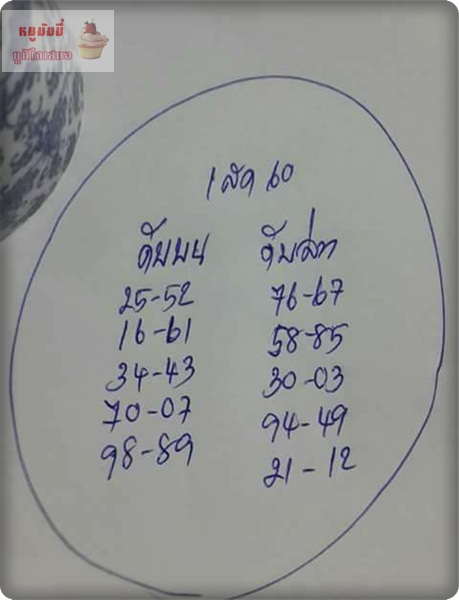 หมูมัมมี่
มูมีโอเสมอ
1 สค 60
ดับบน ดับล่าง
25-52 76-67
16-61 58-85
34-43 30-03
70-07 94-49
98-89 21-12